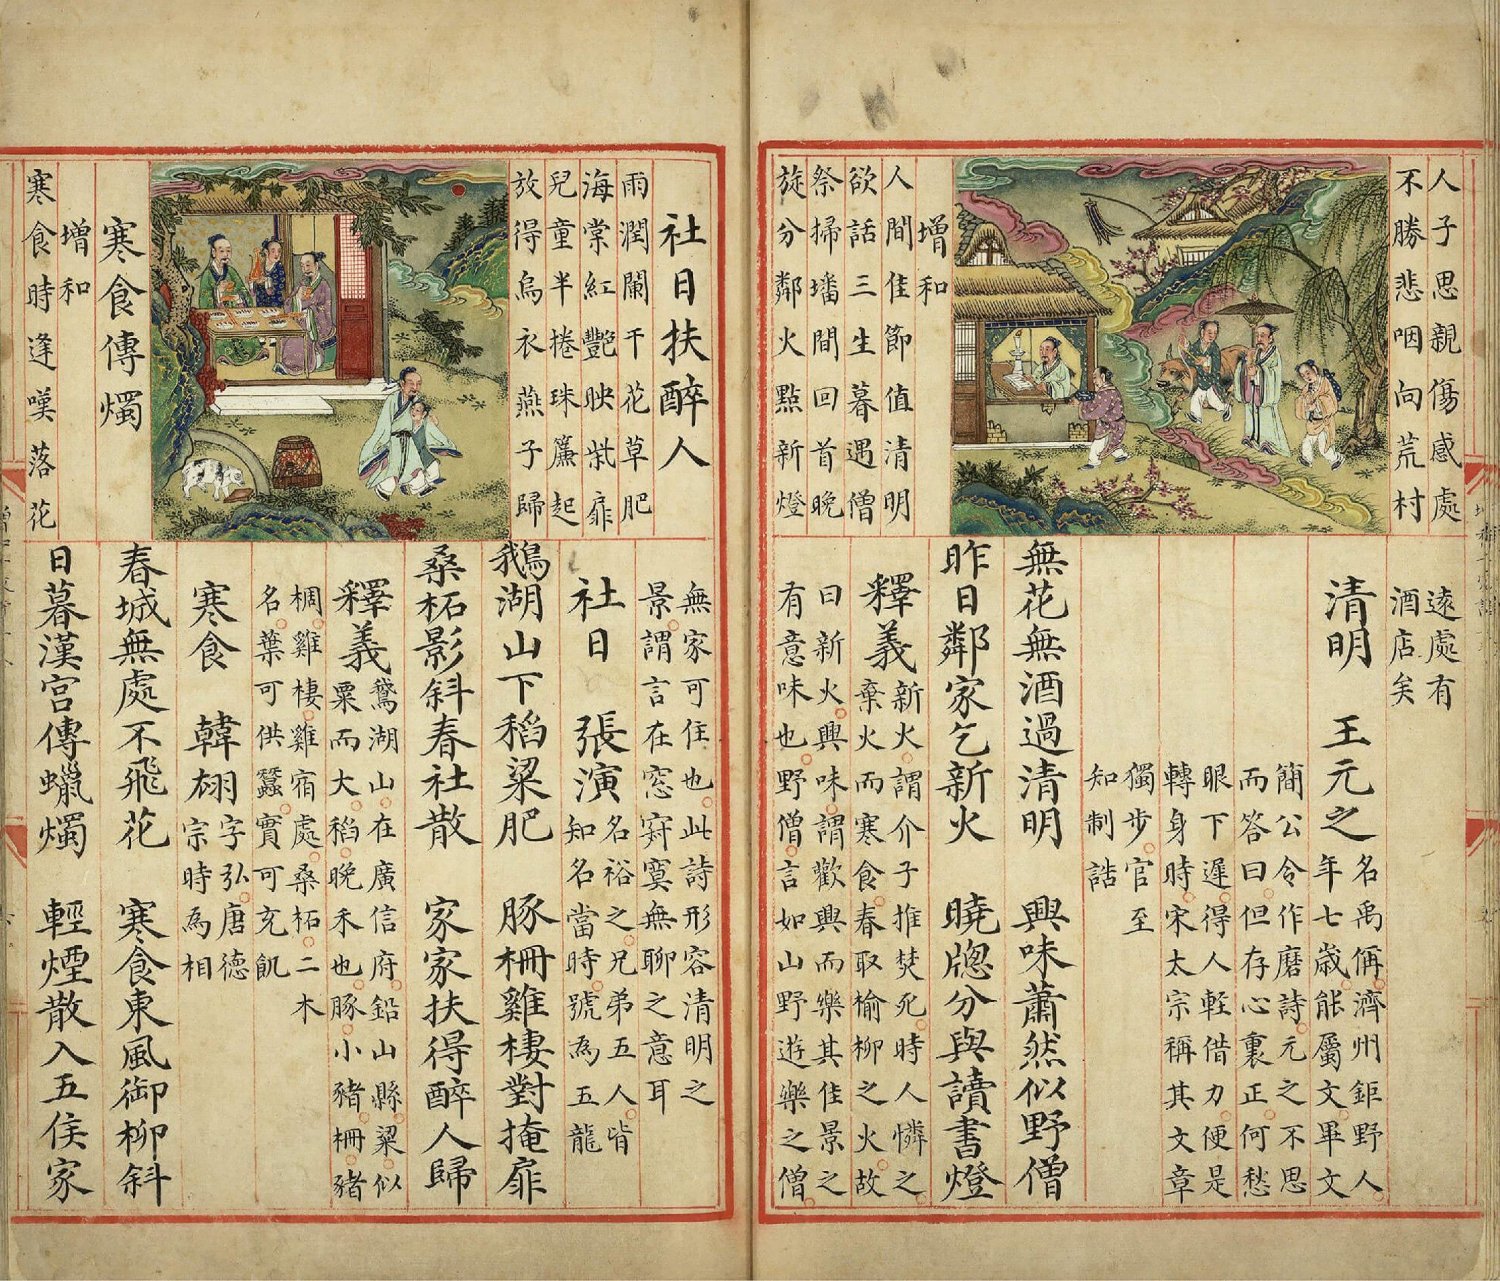 人子思親傷感處
不勝悲咽向荒村
增和
人間佳節值清明
欲話三生暮遇僧
祭掃墦間回首晚
旋分鄰火點新燈
遠處有
酒店矣
清明 王元之 名禹偁濟州鉅野人
年七歲能屬文畢文
簡公令作磨詩元之不思
而答曰但存心裏正何愁
眼下遲得人輕借力便是
轉身時宋太宗稱其文章
獨步官至
知制誥
無花無酒過清明 興味蕭然似野僧
昨日鄰家乞新火 曉牕分與讀書燈
釋義 新火謂介子推焚死時人憐之
棄火而寒食春取榆柳之火故
曰新火興味謂歡興而樂其佳景之
有意味也野僧言如山野遊樂之僧
社日扶醉人
雨潤闌干花草肥
海棠紅艷映柴扉
兒童半捲珠簾起
放得烏衣燕子歸
寒食傳燭
增和
寒食時逢嘆落花
無家可住也此詩形容清明之
景謂言在窓寂寞無聊之意耳
社日 張演 名裕之兄弟五人皆
知名當時號為五龍
鵝湖山下稻粱肥 豚柵雞棲對掩扉
桑柘影斜春社散 家家扶得醉人歸
釋義 鵞湖山在廣信府鉛山縣粱似
粟而大稻晚禾也豚小豬柵豬
椆雞棲雞宿處桑柘二木
名葉可供蠶實可充飢
寒食 韓翃 字弘唐德
宗時為相
春城無處不飛花 寒食東風御柳斜
日暮漢宮傳蠟燭 輕煙散入五侯家